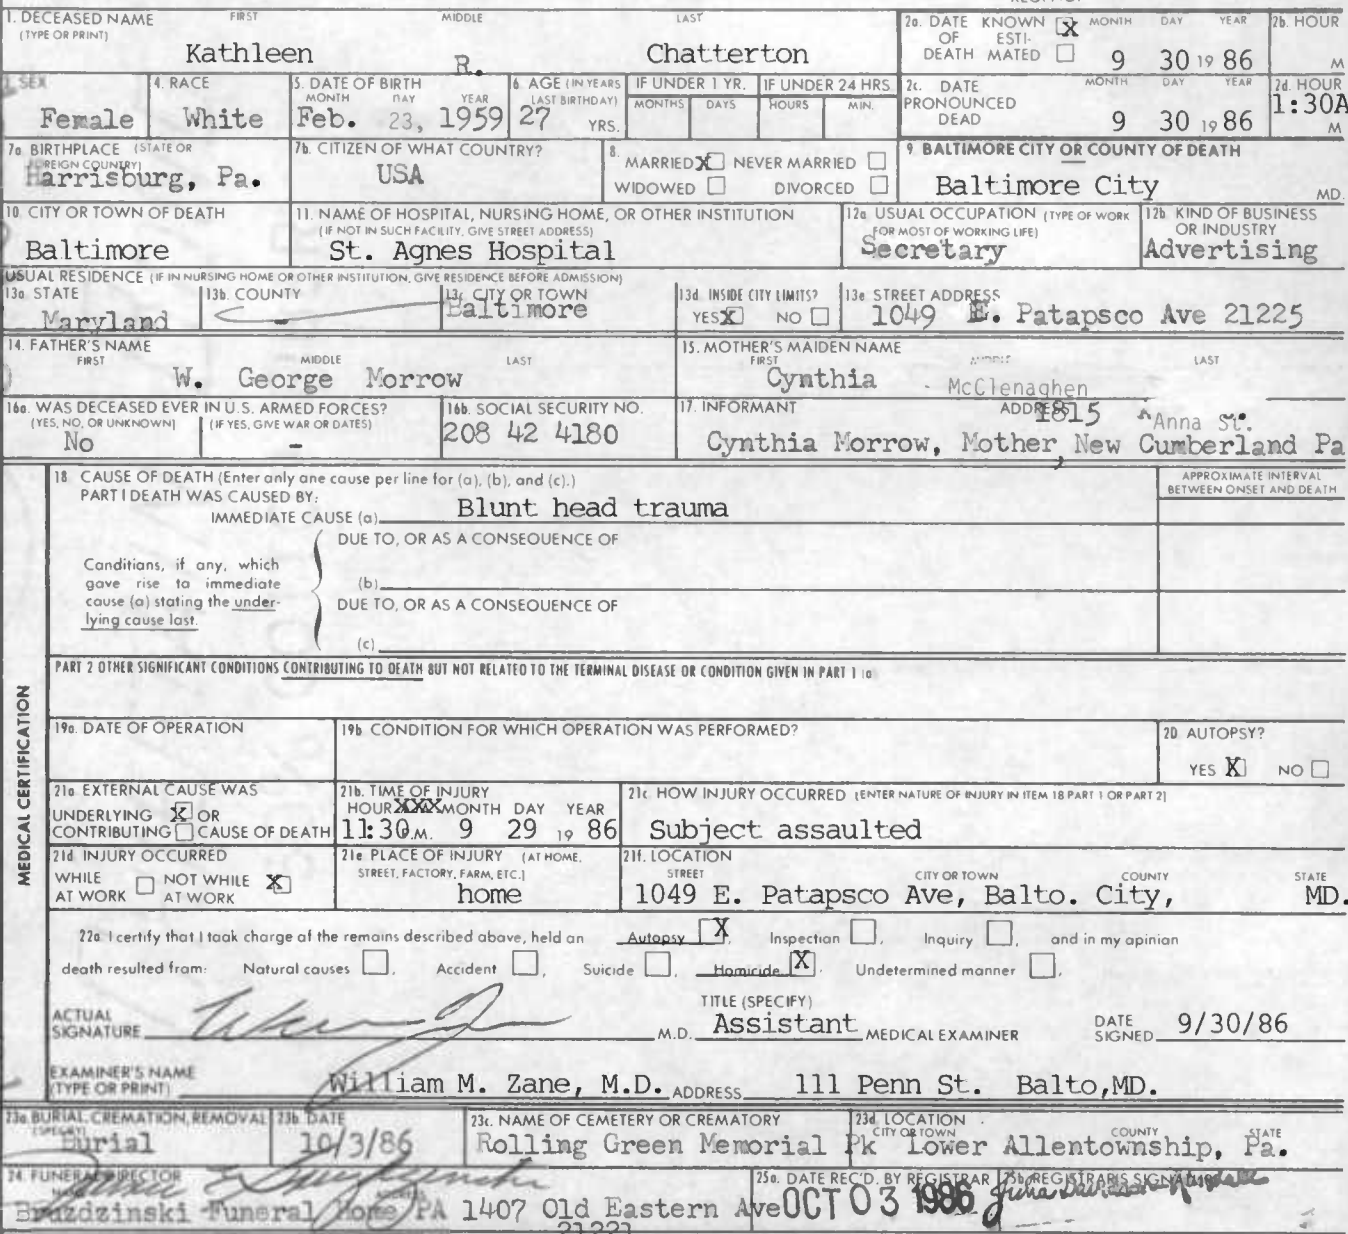 1. DECEASED NAME FIRST MIDDLE LAST
(TYPE OR PRINT)
Kathleen R. Chatterton
2a. DATE OF DEATH KNOWN X ESTIMATED MONTH DAY YEAR
9 30 19 86
2b. HOUR
M
3. SEX
Female
4. RACE
White
5. DATE OF BIRTH
MONTH DAY YEAR
Feb. 23, 1959
6. AGE (IN YEARS LAST BIRTHDAY)
27 YRS.
IF UNDER 1 YR.
MONTHS DAYS
IF UNDER 24 HRS.
HOURS MIN.
2c. DATE PRONOUNCED DEAD
MONTH DAY YEAR
9 30 19 86
2d. HOUR
1:30A
M
7a. BIRTHPLACE (STATE OR FOREIGN COUNTRY)
Harrisburg, Pa.
7b. CITIZEN OF WHAT COUNTRY?
USA
8.
MARRIED X NEVER MARRIED
WIDOWED DIVORCED
9. BALTIMORE CITY OR COUNTY OF DEATH
Baltimore City MD.
10. CITY OR TOWN OF DEATH
Baltimore
11. NAME OF HOSPITAL, NURSING HOME, OR OTHER INSTITUTION
(IF NOT IN SUCH FACILITY, GIVE STREET ADDRESS)
St. Agnes Hospital
12a. USUAL OCCUPATION (TYPE OF WORK FOR MOST OF WORKING LIFE)
Secretary
12b. KIND OF BUSINESS OR INDUSTRY
Advertising
USUAL RESIDENCE (IF IN NURSING HOME OR OTHER INSTITUTION, GIVE RESIDENCE BEFORE ADMISSION)
13a. STATE
Maryland
13b. COUNTY
13c. CITY OR TOWN
Baltimore
13d. INSIDE CITY LIMITS?
YES X NO
13e. STREET ADDRESS
1049 E. Patapsco Ave 21225
14. FATHER'S NAME
FIRST MIDDLE LAST
W. George Morrow
15. MOTHER'S MAIDEN NAME
FIRST MIDDLE LAST
Cynthia McClenaghen
16a. WAS DECEASED EVER IN U.S. ARMED FORCES?
(YES, NO, OR UNKNOWN) (IF YES, GIVE WAR OR DATES)
No -
16b. SOCIAL SECURITY NO.
208 42 4180
17. INFORMANT ADDRESS
1815 Anna St.
Cynthia Morrow, Mother, New Cumberland Pa
MEDICAL CERTIFICATION
18. CAUSE OF DEATH (Enter only one cause per line for (a), (b), and (c).)
PART I DEATH WAS CAUSED BY:
IMMEDIATE CAUSE (a) Blunt head trauma
APPROXIMATE INTERVAL
BETWEEN ONSET AND DEATH
DUE TO, OR AS A CONSEQUENCE OF
Conditions, if any, which
gave rise to immediate
cause (a) stating the under-
lying cause last.
(b)
DUE TO, OR AS A CONSEQUENCE OF
(c)
PART 2 OTHER SIGNIFICANT CONDITIONS CONTRIBUTING TO DEATH BUT NOT RELATED TO THE TERMINAL DISEASE OR CONDITION GIVEN IN PART 1 (a)
19a. DATE OF OPERATION
19b. CONDITION FOR WHICH OPERATION WAS PERFORMED?
20. AUTOPSY?
YES X NO
21a. EXTERNAL CAUSE WAS
UNDERLYING X OR
CONTRIBUTING CAUSE OF DEATH
21b. TIME OF INJURY
HOUR XXX MONTH DAY YEAR
11:30 P.M. 9 29 19 86
21c. HOW INJURY OCCURRED (ENTER NATURE OF INJURY IN ITEM 18 PART 1 OR PART 2)
Subject assaulted
21d. INJURY OCCURRED
WHILE AT WORK NOT WHILE AT WORK X
21e. PLACE OF INJURY (AT HOME, STREET, FACTORY, FARM, ETC.)
home
21f. LOCATION
STREET CITY OR TOWN COUNTY STATE
1049 E. Patapsco Ave, Balto. City, MD.
22a. I certify that I took charge of the remains described above, held an Autopsy X, Inspection, Inquiry, and in my opinion
death resulted from: Natural causes, Accident, Suicide, Homicide X. Undetermined manner.
ACTUAL SIGNATURE M.D.
TITLE (SPECIFY)
Assistant MEDICAL EXAMINER
DATE SIGNED 9/30/86
EXAMINER'S NAME
(TYPE OR PRINT) William M. Zane, M.D. ADDRESS 111 Penn St. Balto,MD.
23a. BURIAL, CREMATION, REMOVAL
(SPECIFY)
Burial
23b. DATE
10/3/86
23c. NAME OF CEMETERY OR CREMATORY
Rolling Green Memorial Pk
23d. LOCATION
CITY OR TOWN COUNTY STATE
Lower Allentownship, Pa.
24. FUNERAL DIRECTOR
Bruzdzinski Funeral Home PA 1407 Old Eastern Ave
21221
25a. DATE REC'D. BY REGISTRAR
OCT 03 1986
25b. REGISTRAR'S SIGNATURE